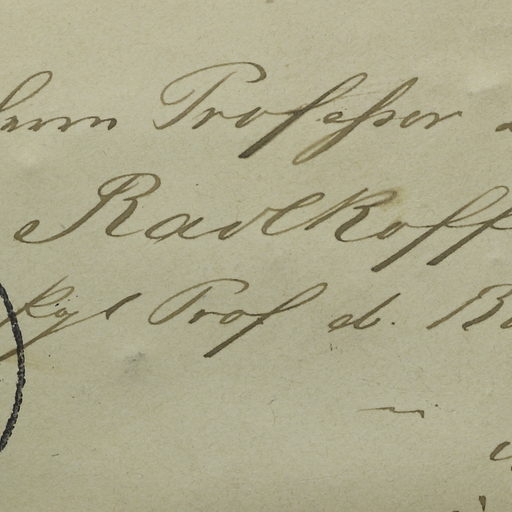 Herrn Professor
Radlkoff
Kgl Prof d. Bo